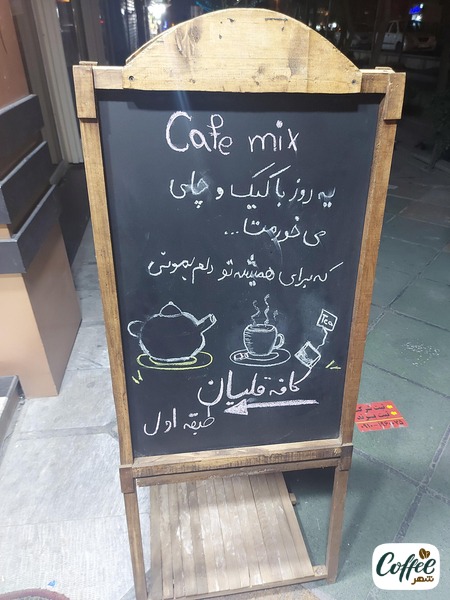 Cafe mix
یه روز با کیک و چایی
می خورمت...
که برای همیشه تو دلم بمونی
Tea
کافه قلیان
طبقه اول
Coffee
شهر